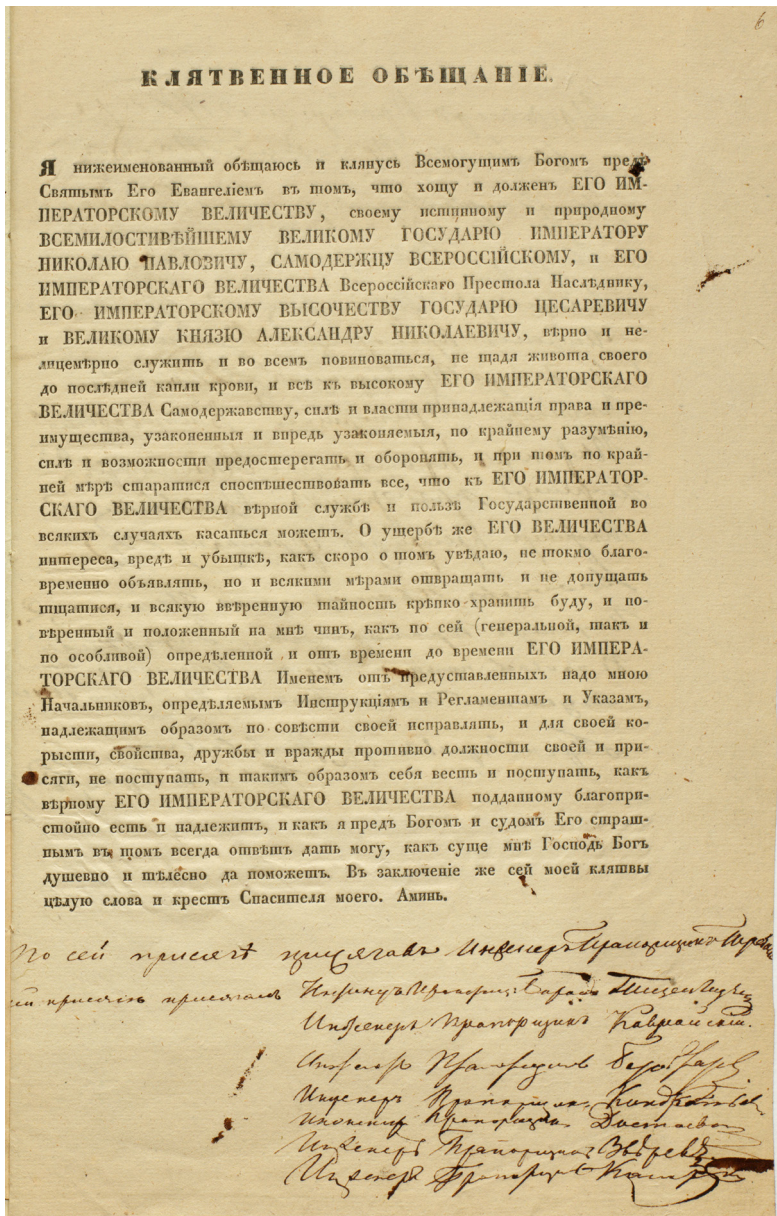 6
КЛЯТВЕННОЕ ОБѢЩАНІЕ.
Я нижеименованный обѣщаюсь и клянусь Всемогущимъ Богомъ предъ
Святымъ Его Евангеліемъ въ томъ, что хощу и долженъ ЕГО ИМ-
ПЕРАТОРСКОМУ ВЕЛИЧЕСТВУ, своему истинному и природному
ВСЕМИЛОСТИВѢЙШЕМУ ВЕЛИКОМУ ГОСУДАРЮ ИМПЕРАТОРУ
НИКОЛАЮ ПАВЛОВИЧУ, САМОДЕРЖЦУ ВСЕРОССІЙСКОМУ, и ЕГО
ИМПЕРАТОРСКАГО ВЕЛИЧЕСТВА Всероссійскаго Престола Наслѣднику,
ЕГО ИМПЕРАТОРСКОМУ ВЫСОЧЕСТВУ ГОСУДАРЮ ЦЕСАРЕВИЧУ
и ВЕЛИКОМУ КНЯЗЮ АЛЕКСАНДРУ НИКОЛАЕВИЧУ, вѣрно и не-
лицемѣрно служить и во всемъ повиноваться, не щадя живота своего
до послѣдней капли крови, и всѣ къ высокому ЕГО ИМПЕРАТОРСКАГО
ВЕЛИЧЕСТВА Самодержавству, силѣ и власти принадлежащія права и пре-
имущества, узаконенныя и впредь узаконяемыя, по крайнему разумѣнію,
силѣ и возможности предостерегать и оборонять, и при томъ по край-
ней мѣрѣ старатися споспѣшествовать все, что къ ЕГО ИМПЕРАТОР-
СКАГО ВЕЛИЧЕСТВА вѣрной службѣ и пользѣ Государственной во
всякихъ случаяхъ касаться можетъ. О ущербѣ же ЕГО ВЕЛИЧЕСТВА
интереса, вредѣ и убыткѣ, какъ скоро о томъ увѣдаю, не токмо благо-
временно объявлять, но и всякими мѣрами отвращать и не допущать
тщатися, и всякую ввѣренную тайность крѣпко хранить буду, и по-
вѣренный и положенный на мнѣ чинъ, какъ по сей (генеральной, такъ и
по особливой) опредѣленной и отъ времени до времени ЕГО ИМПЕРА-
ТОРСКАГО ВЕЛИЧЕСТВА Именемъ отъ предуставленныхъ надо мною
Начальниковъ, опредѣляемымъ Инструкціямъ и Регламентамъ и Указамъ,
надлежащимъ образомъ по совѣсти своей исправлять, и для своей ко-
рысти, свойства, дружбы и вражды противно должности своей и при-
сяги, не поступать, и такимъ образомъ себя весть и поступать, какъ
вѣрному ЕГО ИМПЕРАТОРСКАГО ВЕЛИЧЕСТВА подданному благопри-
стойно есть и надлежитъ, и какъ я предъ Богомъ и судомъ Его страш-
нымъ въ томъ всегда отвѣтъ дать могу, какъ суще мнѣ Господь Богъ
душевно и тѣлесно да поможетъ. Въ заключеніе же сей моей клятвы
цѣлую слова и крестъ Спасителя моего. Аминь.
По сей присягѣ присягалъ Инженеръ Прапорщикъ
сей присягѣ присягалъ Инженеръ Прапорщ:
Инженеръ Прапорщикъ Каврайскій.
Инженеръ Прапорщикъ
Инженеръ Прапорщикъ
Инженеръ Прапорщикъ Достоевскій
Инженеръ Прапорщикъ Звѣревъ
Инженеръ Прапорщикъ